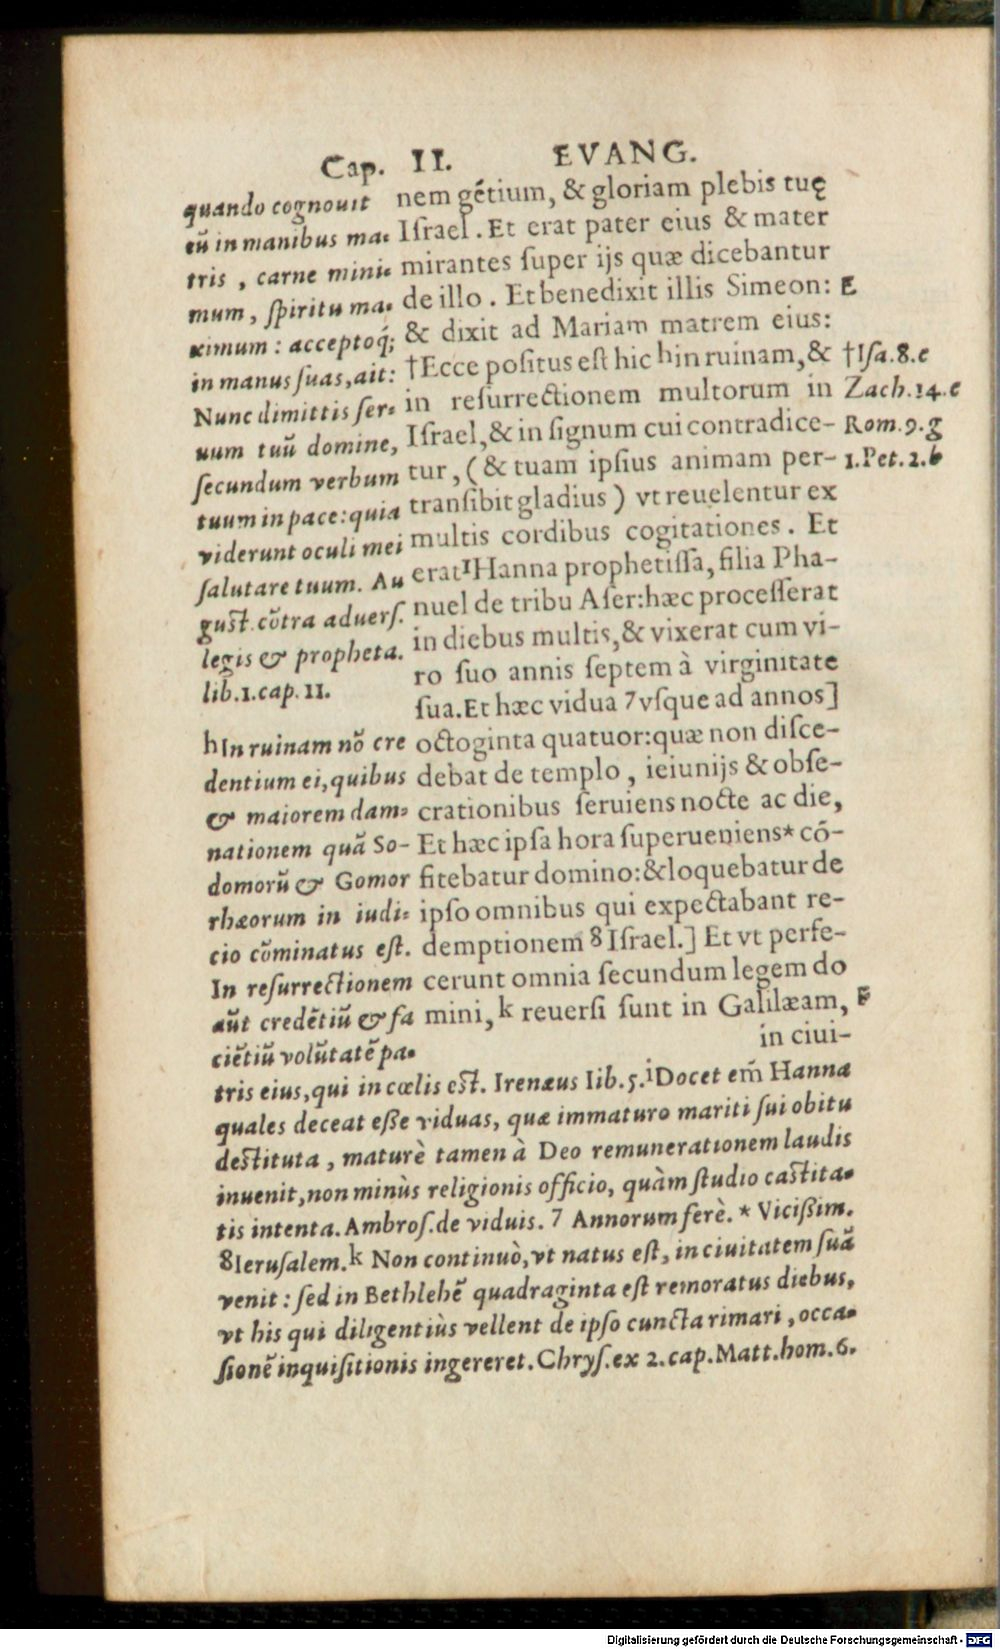 Cap. II. EVANG.
quando cognouit
eũ in manibus ma⸗
tris , carne mini⸗
mum, ſpiritu ma⸗
ximum : acceptoq́;
in manus ſuas, ait:
Nunc dimittis ſer⸗
uum tuũ domine,
ſecundum verbum
tuum in pace: quia
viderunt oculi mei
ſalutare tuum. Au
guſt. cõtra aduerſ.
legis & propheta.
lib.1.cap. 11.
h In ruinam nõ cre
dentium ei, quibus
& maiorem dam⸗
nationem quã So-
domorũ & Gomor
rhæorum in iudi⸗
cio cõminatus eſt.
In reſurrectionem
aũt credẽtiũ & fa
ciẽtiũ volũtatẽ pa⸗
nem gẽtium, & gloriam plebis tuę
Iſrael. Et erat pater eius & mater
mirantes ſuper ijs quæ dicebantur
de illo. Et benedixit illis Simeon:
& dixit ad Mariam matrem eius:
†Ecce poſitus eſt hic h in ruinam, &
in reſurrectionem multorum in
Iſrael, & in ſignum cui contradice-
tur, (& tuam ipſius animam per-
tranſibit gladius) vt reuelentur ex
multis cordibus cogitationes. Et
erat I Hanna prophetiſſa, filia Pha-
nuel de tribu Aſer: hæc proceſſerat
in diebus multis, & vixerat cum vi-
ro ſuo annis ſeptem à virginitate
ſua. Et hæc vidua 7 vſque ad annos]
octoginta quatuor: quæ non diſce-
debat de templo, ieiunijs & obſe-
crationibus ſeruiens nocte ac die,
Et hæc ipſa hora ſuperueniens* cõ-
fitebatur domino: & loquebatur de
ipſo omnibus qui expectabant re-
demptionem 8 Iſrael.] Et vt perfe-
cerunt omnia ſecundum legem do
mini, k reuerſi ſunt in Galilæam,
in ciui-
E
†Iſa.8.c
Zach.14.c
Rom.9.g
1.Pet.2.b
F
tris eius, qui in cœlis eſt. Irenæus lib.5. i Docet em̃ Hanna
quales deceat eſſe viduas, quæ immaturo mariti ſui obitu
deſtituta , maturè tamen à Deo remunerationem laudis
inuenit, non minùs religionis officio, quàm ſtudio caſtita⸗
tis intenta. Ambroſ. de viduis. 7 Annorum ferè. * Viciſsim.
8 Ieruſalem. k Non continuò, vt natus eſt, in ciuitatem ſuã
venit : ſed in Bethlehẽ quadraginta eſt remoratus diebus,
vt his qui diligentiùs vellent de ipſo cuncta rimari, occa⸗
ſionẽ inquiſitionis ingereret. Chryſ. ex 2. cap. Matt. hom. 6.
Digitalisierung gefördert durch die Deutsche Forschungsgemeinschaft - DFG